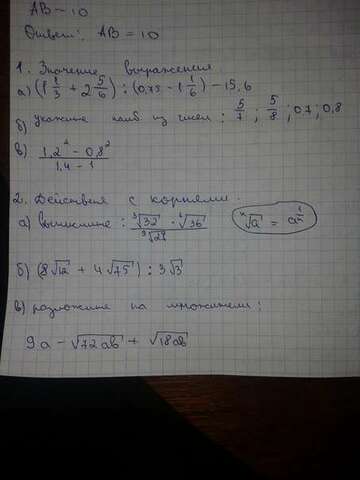 АВ = 10
Ответ: АВ = 10
1. Значение выражения
а) (1 1/3 + 2 5/6) : (0,75 - 1 1/6) - 15,6
б) укажите наиб из чисел : 5/7 ; 5/8 ; 0,7 ; 0,8
в) (1,2² - 0,8²)/(1,4 - 1)
2. Действия с корнями:
а) вычислите :
б) (8√12 + 4√75) : 3√3
в) разложите на множители:
9a - √72ab + √18ab